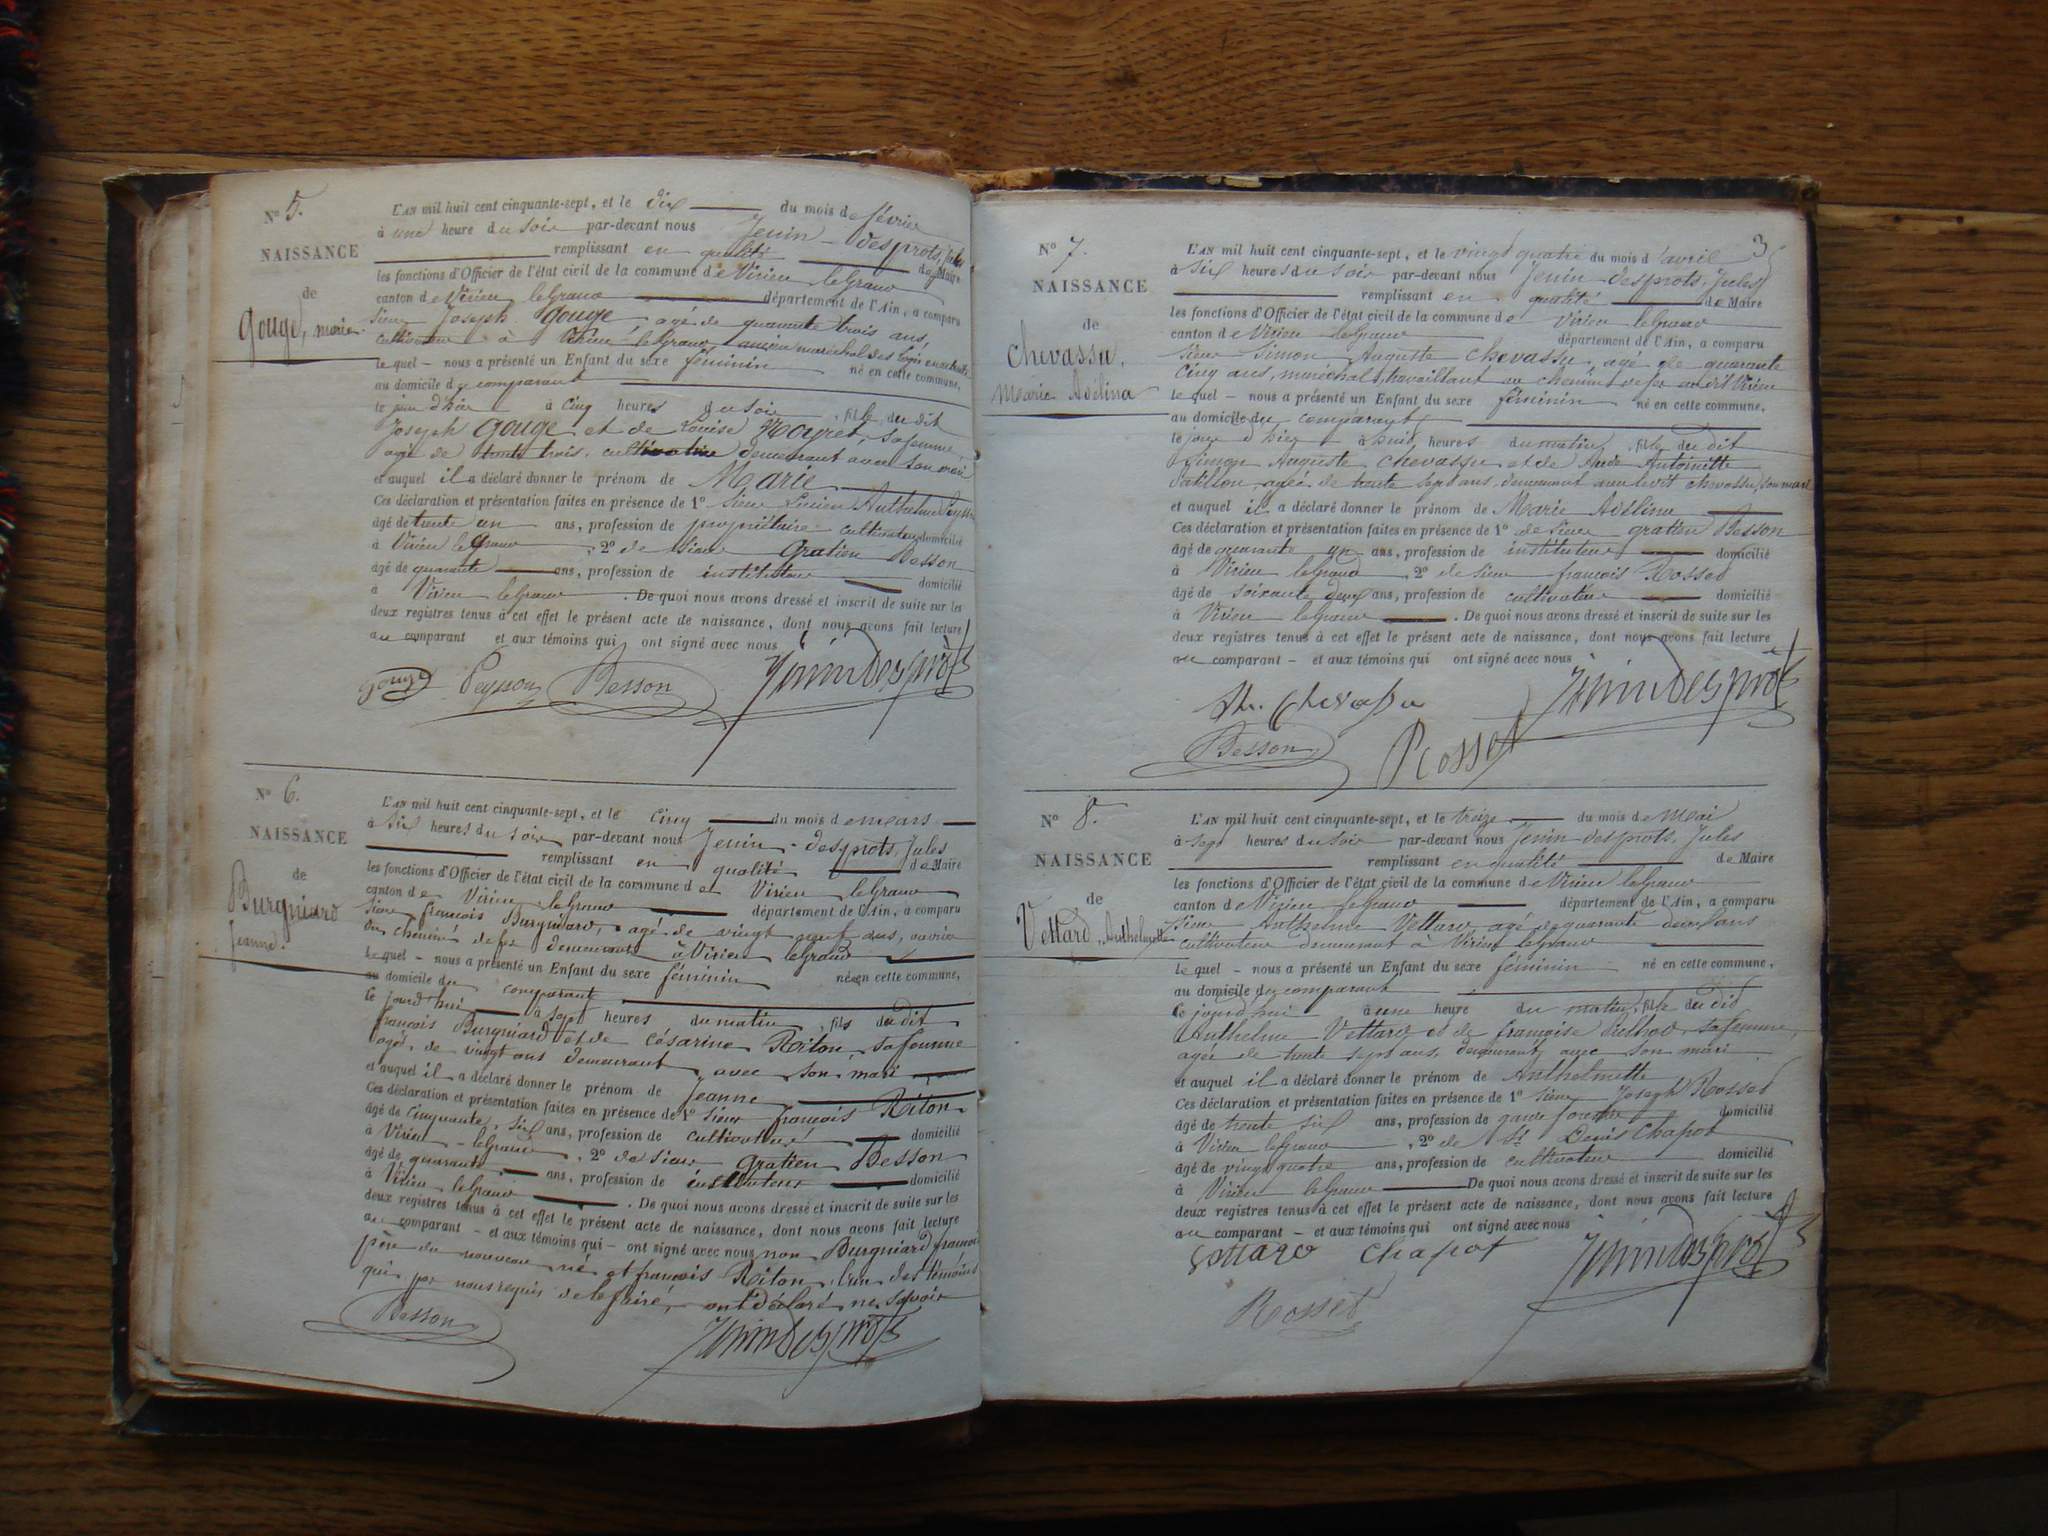 N° 5.
NAISSANCE
de
Gouge, marie
L'AN mil huit cent cinquante-sept, et le dix du mois de février
à une heure du soir par-devant nous Jenin-desprots, Jules
remplissant en qualité de Maire
les fonctions d'Officier de l'état civil de la commune de Virieu leGrand
canton de Virieu leGrand département de l'Ain, a comparu
sieur Joseph Gouge agé de quarante trois ans,
cultivateur à Virieu leGrand, ancien maréchal des logis en retraite
lequel - nous a présenté un Enfant du sexe féminin né en cette commune,
au domicile du comparant
le jour d'hier à cinq heures du soir, fille du dit
Joseph Gouge et de Louise Moyret, sa femme,
agée de trente trois, cultivatrice demeurant avec son mari
et auquel il a déclaré donner le prénom de Marie
Ces déclaration et présentation faites en présence de 1° sieur Lucien Anthelme Peysson
âgé de trente un ans, profession de propriétaire cultivateur domicilié
à Virieu leGrand, 2° de sieur gratien Besson
âgé de quarante ans, profession de instituteur domicilié
à Virieu leGrand. De quoi nous avons dressé et inscrit de suite sur les
deux registres tenus à cet effet le présent acte de naissance, dont nous avons fait lecture
au comparant et aux témoins qui ont signé avec nous
gouge Peysson Besson Jenindesprots
N° 6.
NAISSANCE
de
Burgniard
jeanne.
L'AN mil huit cent cinquante-sept, et le cinq du mois de mars
à six heures du soir par-devant nous Jenin-desprots, Jules
remplissant en qualité de Maire
les fonctions d'Officier de l'état civil de la commune de Virieu leGrand
canton de Virieu leGrand département de l'Ain, a comparu
sieur françois Burgniard, agé de vingt neuf ans, ouvrier
du chemin de fer demeurant à Virieu leGrand
lequel - nous a présenté un Enfant du sexe féminin né en cette commune,
au domicile du comparant
le jourd'hui à sept heures du matin, fils du dit
françois Burgniard et de césarine Riton, sa femme
agée de vingt ans demeurant avec son mari
et auquel il a déclaré donner le prénom de Jeanne
Ces déclaration et présentation faites en présence de 1° sieur françois Riton
âgé de cinquante six ans, profession de cultivateur domicilié
à Virieu-leGrand, 2° de sieur gratien Besson
âgé de quarante ans, profession de instituteur domicilié
à Virieu leGrand. De quoi nous avons dressé et inscrit de suite sur les
deux registres tenus à cet effet le présent acte de naissance, dont nous avons fait lecture
au comparant - et aux témoins qui - ont signé avec nous non Burgniard françois
père du nouveau né et françois Riton, l'un des témoins
qui par nous requis de le faire, ont déclaré ne savoir
Besson Jenindesprots
3
N° 7.
NAISSANCE
de
Chevassu,
Marie Adélina
L'AN mil huit cent cinquante-sept, et le vingt quatre du mois d'avril
à six heures du soir par-devant nous Jenin desprots, Jules
remplissant en qualité de Maire
les fonctions d'Officier de l'état civil de la commune de Virieu leGrand
canton de Virieu leGrand département de l'Ain, a comparu
sieur Simon Auguste Chevassu, agé de quarante
cinq ans, maréchal, travaillant au chemin de fer audit Virieu
lequel - nous a présenté un Enfant du sexe féminin né en cette commune,
au domicile du comparant
le jour d'hier à huit heures du matin, fille du dit
Simon Auguste Chevassu et de Antoinette
agée de trente sept ans, demeurant avec ledit chevassu, son mari
et auquel il a déclaré donner le prénom de Marie Adélina
Ces déclaration et présentation faites en présence de 1° de sieur gratien Besson
âgé de quarante un ans, profession de instituteur domicilié
à Virieu leGrand, 2° de sieur françois Rosset
âgé de soixante deux ans, profession de cultivateur domicilié
à Virieu leGrand. De quoi nous avons dressé et inscrit de suite sur les
deux registres tenus à cet effet le présent acte de naissance, dont nous avons fait lecture
au comparant - et aux témoins qui ont signé avec nous
Chevassu Jenindesprots
Besson Rosset
N° 8.
NAISSANCE
de
Vettard, Anthelmette
L'AN mil huit cent cinquante-sept, et le treize du mois de Mai
à sept heures du soir par-devant nous Jenin desprots, Jules
remplissant en qualité de Maire
les fonctions d'Officier de l'état civil de la commune de Virieu leGrand
canton de Virieu leGrand département de l'Ain, a comparu
sieur Anthelme Vettard agé de quarante deux ans
cultivateur demeurant à Virieu leGrand
lequel - nous a présenté un Enfant du sexe féminin né en cette commune,
au domicile du comparant
le jourd'hui à une heure du matin, fille du dit
Anthelme Vettard et de françoise sa femme,
agée de trente sept ans, demeurant avec son mari
et auquel il a déclaré donner le prénom de Anthelmette
Ces déclaration et présentation faites en présence de 1° sieur Joseph Rosset
âgé de trente six ans, profession de garde forestier domicilié
à Virieu leGrand, 2° de Sr Denis Chapot
âgé de vingt quatre ans, profession de cultivateur domicilié
à Virieu leGrand De quoi nous avons dressé et inscrit de suite sur les
deux registres tenus à cet effet le présent acte de naissance, dont nous avons fait lecture
au comparant - et aux témoins qui ont signé avec nous
Vettard Chapot Jenindesprots
Rosset